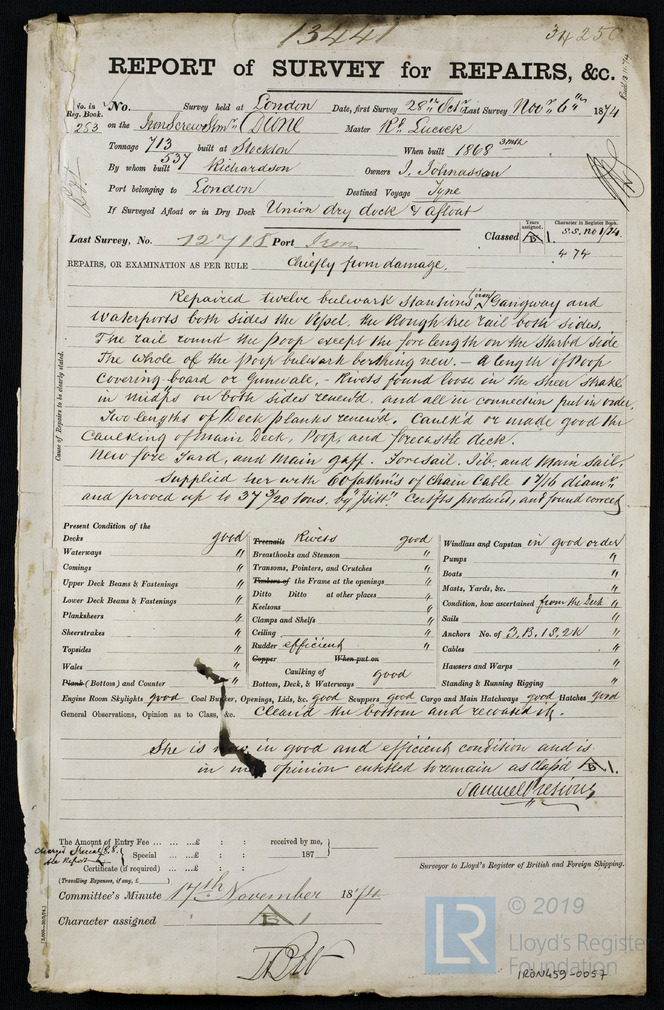 13441
34250
REPORT of SURVEY for REPAIRS, &c.
No. in Reg. Book. 253
No. Survey held at London Date, first Survey 28th Octr Last Survey Novr 6th 1874
on the Iron Screw Stmr DIONE Master Rt. Lucock
Tonnage 713 built at Stockton When built 1868 3 mth
537
By whom built Richardson Owners J. Johnassan
Port belonging to London Destined Voyage Tyne
If Surveyed Afloat or in Dry Dock Union dry dock & afloat
Last Survey, No. 12718 Port Iron Classed Years assigned. A 1. Character in Register Book. S.S. No 1/74.
4 74
REPAIRS, OR EXAMINATION AS PER RULE Chiefly from damage.
Cause of Repairs to be clearly stated.
Repaired twelve bulwark stantions (iron) Gangway and
Waterports both sides the Vessel, the Rough tree rail both sides.
The rail round the Poop except the fore length on the Starbd side
The whole of the poop bulwark berthing new. - A length of Poop
Covering-board or Gunwale. - Rivets found loose in the Sheer Strake
in midps on both sides renewd. and all in connection put in order.
Two lengths of Deck planks renewd. Caulk'd or made good the
Caulking of main Deck, Poop, and forecastle deck.
New fore yard, and main gaff. Foresail. Jib. and Main sail.
Supplied her with 60 fathms of Chain Cable 1 7/16 diamr
and proved up to 37 3/20 tons. Certfts produced, and found correct
Present Condition of the
Decks good
Waterways "
Comings "
Upper Deck Beams & Fastenings "
Lower Deck Beams & Fastenings "
Planksheers "
Sheerstrakes "
Topsides "
Wales "
Plank (Bottom) and Counter "
Treenails Rivets good
Breasthooks and Stemson "
Transoms, Pointers, and Crutches "
Timbers of the Frame at the openings "
Ditto Ditto at other places "
Keelsons "
Clamps and Shelfs "
Ceiling "
Rudder efficient
Copper When put on
Caulking of
Bottom, Deck, & Waterways good
Windlass and Capstan in good order
Pumps "
Boats "
Masts, Yards, &c. "
Condition, how ascertained from the Deck "
Sails "
Anchors No. of 3. B. 1 S. 2 K "
Cables "
Hawsers and Warps "
Standing & Running Rigging "
Engine Room Skylights good Coal Bunker, Openings, Lids, &c. good Scuppers good Cargo and Main Hatchways good Hatches good
General Observations, Opinion as to Class, &c. Cleaned the bottom and recoated it.
She is now in good and efficient condition and is
in my opinion entitled to remain as Class'd A 1.
The Amount of Entry Fee ... ... ... £ : : received by me,
Special ... ... £ : : 187
Certificate (if required) ... ... £ : :
(Travelling Expenses, if any, £ )
Surveyor to Lloyd's Register of British and Foreign Shipping.
Committee's Minute 17th November 1874
Character assigned 1
© 2019
LR
Lloyd's Register
Foundation
IRON459-0057